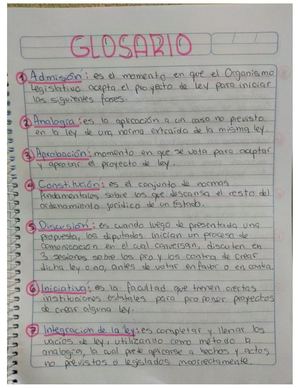 GLOSARIO
1 Admisión: es el momento en que el Organismo
Legislativo acepta el proyecto de ley para iniciar
las siguientes fases.
2 Analogía: es la aplicación a un caso no previsto
en la ley de una norma extraída de la misma ley.
3 Aprobación: momento en que se vota para aceptar
y aprobar el proyecto de ley.
4 Constitución: es el conjunto de normas
fundamentales sobre las que descansa el resto del
ordenamiento jurídico de un Estado.
5 Discusión: es cuando luego de presentada una
propuesta, los diputados inician un proceso de
comunicación en el cual conversan, discuten en
3 sesiones sobre los pro y los contra de crear
dicha ley o no, antes de votar en favor o en contra.
6 Iniciativa: es la facultad que tienen ciertas
instituciones estatales para proponer proyectos
de crear alguna ley.
7 Integración de la ley: es completar y llenar los
vacíos de ley, utilizando como método la
analogía, la cual puede aplicarse a hechos y actos
no previstos o legislados incorrectamente.